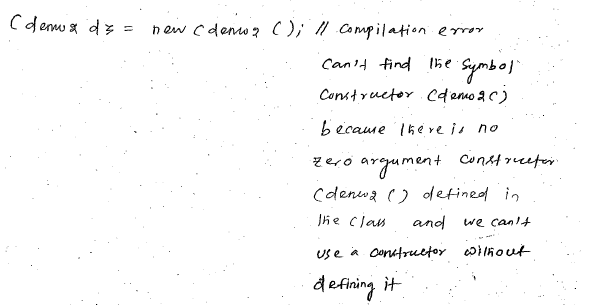 Cdemo2 d3 = new Cdemo2 (); // Compilation error
Can't find the symbol
Constructor Cdemo2()
because there is no
zero argument constructor
Cdemo2 () defined in
the class and we can't
use a constructor without
defining it